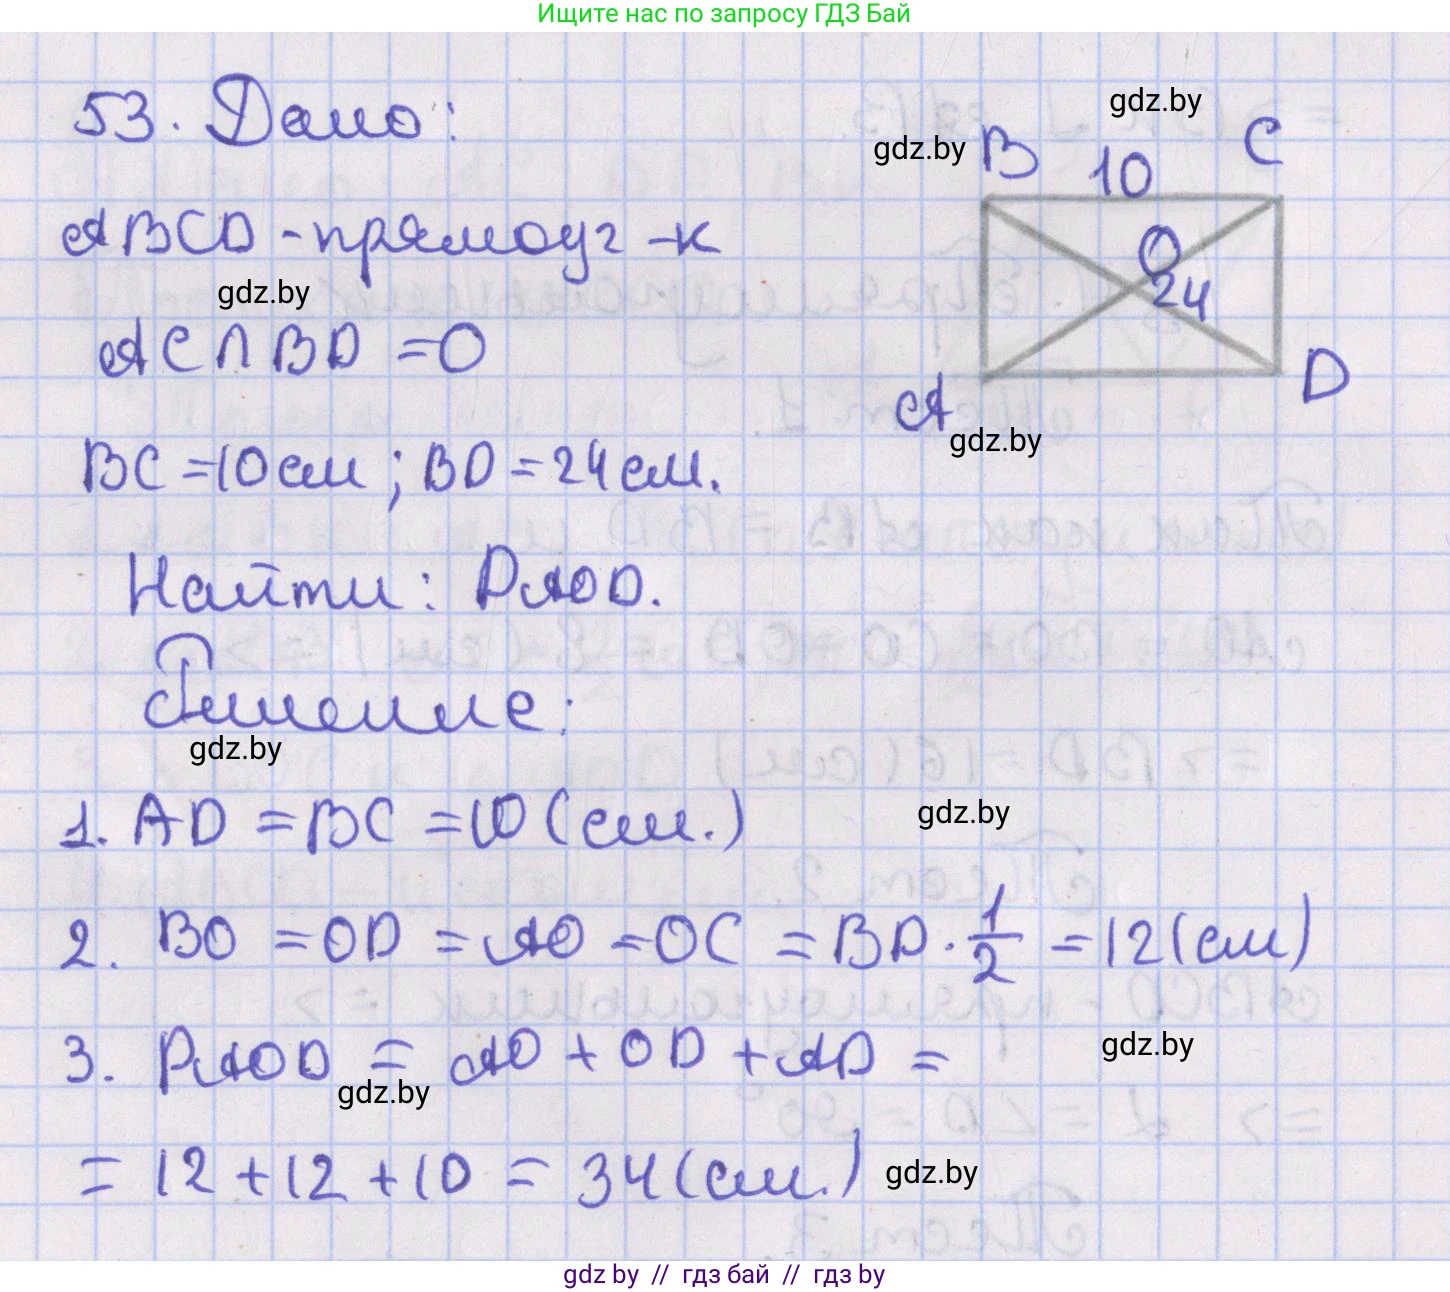 Ищите нас по запросу ГДЗ Бай
53. Дано:
gdz.by
gdz.by
B 10 C
ABCD - прямоуг-к
gdz.by
O
24
AC ∩ BD = O
A
D
gdz.by
BC = 10 см; BD = 24 см.
Найти: PAOD.
Решение:
gdz.by
1. AD = BC = 10 (см.)
gdz.by
2. BO = OD = AO = OC = BD · 1/2 = 12 (см)
3. PAOD = AO + OD + AD =
gdz.by
gdz.by
= 12 + 12 + 10 = 34 (см.)
gdz.by
gdz by // гдз бай // гдз by